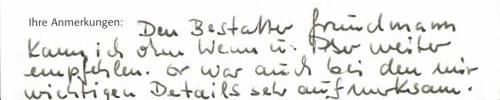 Ihre Anmerkungen: Den Bestatter Grundmann
kann ich ohne Wenn u. Aber weiter
empfehlen. Er war auch bei den mir
wichtigen Details sehr aufmerksam.